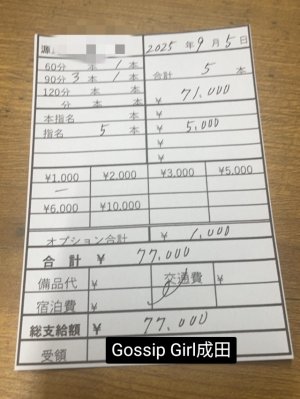 源
2025 年 9 月 5 日
60分 本 1 本
90分 3 本 1 本
合計 5 本
120分 本 本
¥ 71,000
分 本 本
¥
本指名 本
¥ 5,000
指名 5 本
¥
¥
¥1,000 ¥2,000 ¥3,000 ¥5,000
¥6,000 ¥10,000
オプション合計 ¥ 1,000
合計 ¥ 77,000
備品代 ¥ 交通費
宿泊費 ¥ ¥
総支給額 ¥ 77,000
受領
Gossip Girl成田